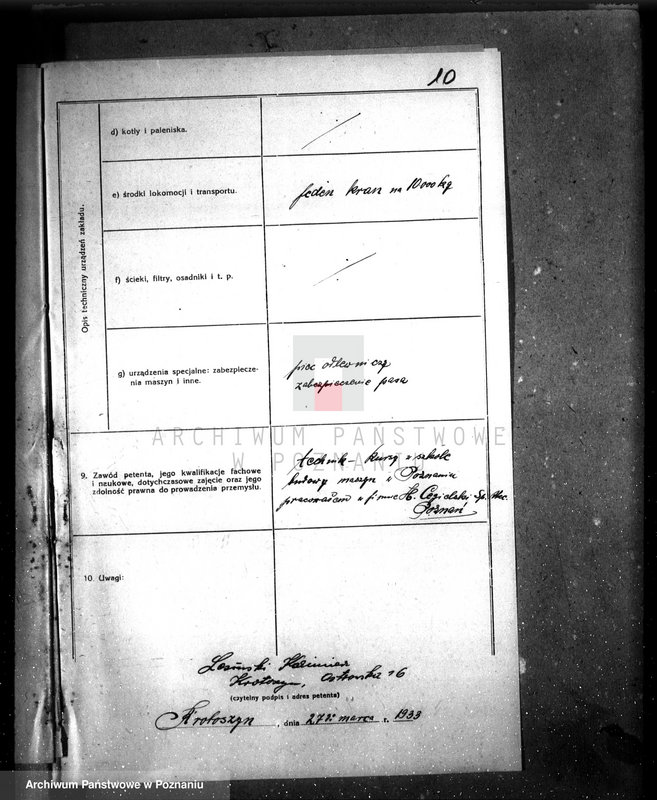 10
Opis techniczny urządzeń zakładu.
d) kotły i paleniska.
e) środki lokomocji i transportu.
jeden kran na 10000 kg
f) ścieki, filtry, osadniki i t. p.
g) urządzenia specjalne: zabezpiecze-
nia maszyn i inne.
piec odlewniczy
zabezpieczenie pasa
ARCHIWUM PAŃSTWOWE
W POZNANIU
9. Zawód petenta, jego kwalifikacje fachowe
i naukowe, dotychczasowe zajęcie oraz jego
zdolność prawna do prowadzenia przemysłu.
technik kursy w szkole
budowy maszyn w Poznaniu
pracowałem w firmie H. Cegielski Sp. Akc.
Poznań
10. Uwagi:
Kazimierz
Krotoszyn, 16
(czytelny podpis i adres petenta)
Krotoszyn, dnia 27 marca r. 1933
Archiwum Państwowe w Poznaniu